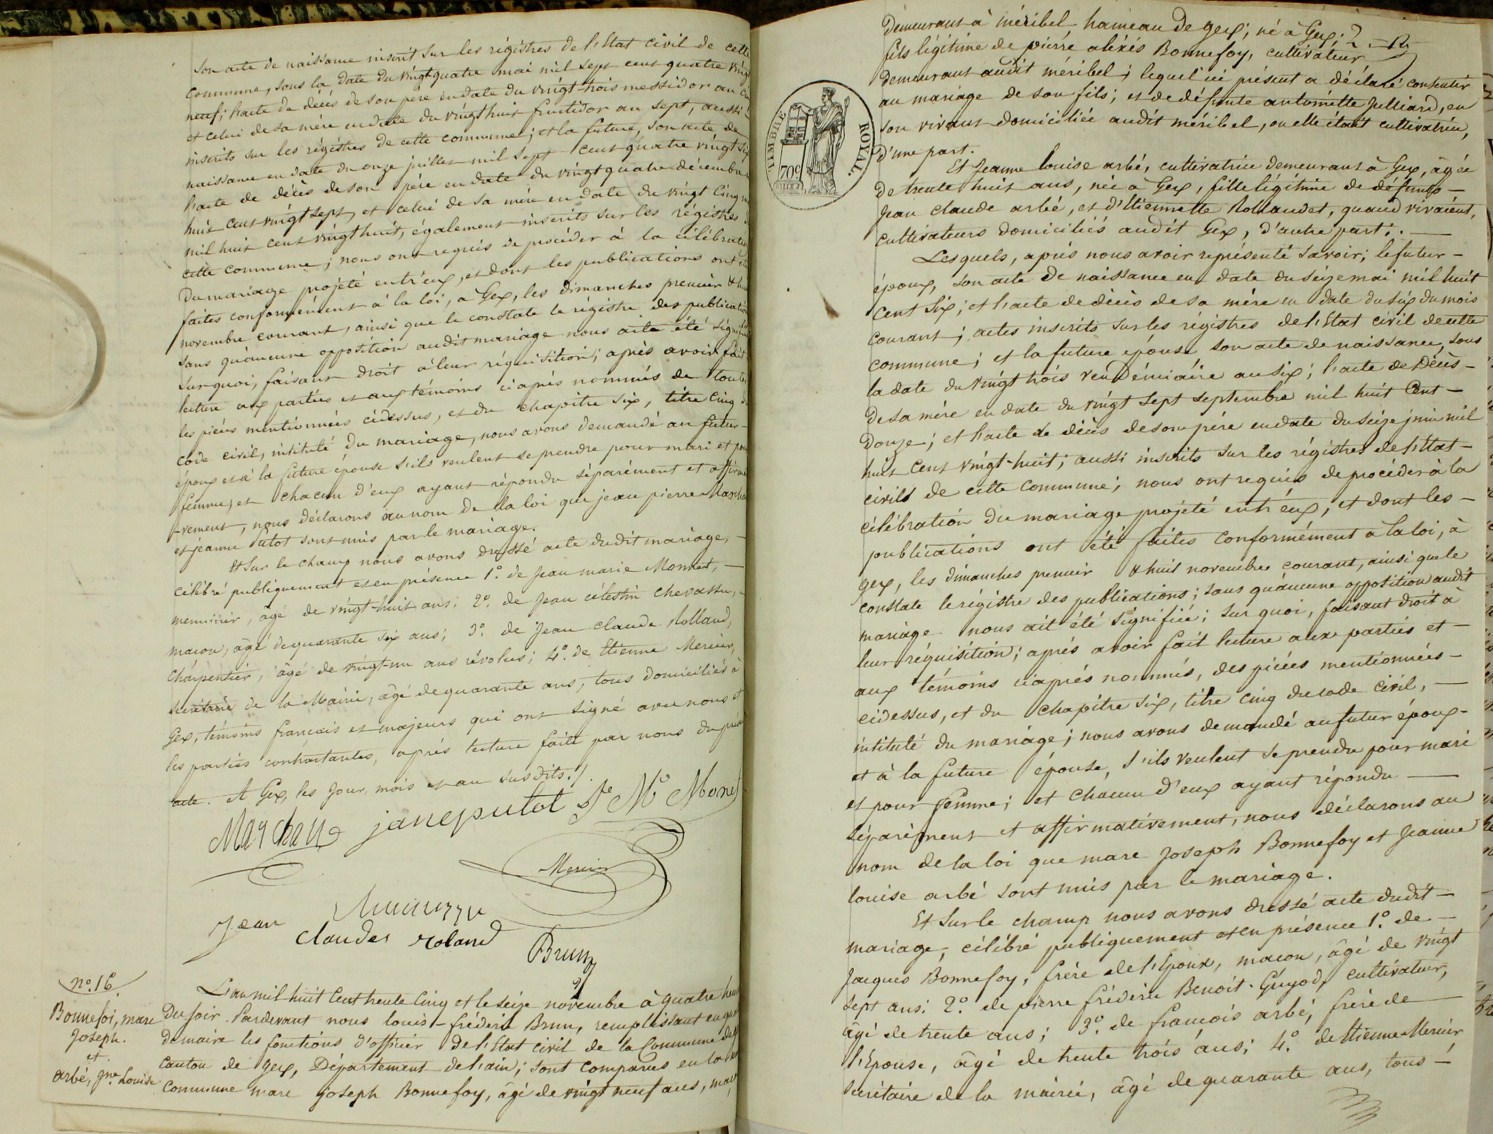 son acte de naissance inscrit sur les régistres de l'Etat civil de cette
commune, sous la date du vingtquatre mai mil sept cent quatre vingt
neuf; l'acte de décès de son père en date du vingt trois messidor an
et celui de sa mère en date du vingt huit fructidor an sept, aussi
inscrits sur les régistres de cette commune; et la future, son acte de
naissance en date du onze juillet mil sept cent quatre vingt six
l'acte de décès de son père en date du vingt quatre décembre
huit cent vingt sept, et celui de sa mère en date du vingt cinq
mil huit cent vingt huit, également inscrits sur les régistres
cette commune; nous ont requis de procéder à la célébration
du mariage projeté entr'eux, et dont les publications ont
faites conformément à la loi, à Gex, les dimanches premier & huit
novembre courant, ainsi que le constate le régistre des publications
sans qu'aucune opposition audit mariage nous aite été signifiée
surquoi, faisant droit à leur réquisition; après avoir fait
lecture aux parties et aux témoins ciaprès nommés de toutes
les pièces mentionnées cidessus, et du chapitre six, titre cinq du
code civil, intitulé du mariage, nous avons demandé au futur
époux et à la future épouse s'ils veulent se prendre pour mari et pour
femme, et chacun d'eux ayant répondu séparément et affirmati
-vement, nous déclarons au nom de la loi que jean pierre Marchand
et jeanne Putot sont unis par le mariage.
Et sur le champ nous avons dressé acte dudit mariage, –
célébré publiquement et en présence 1.º de Jean marie Monnet, –
menuisier, âgé de vingt-huit ans; 2.º de Jean célestin Chevassu, –
macon, âgé de quarante six ans; 3.º de Jean Claude Rolland,
Charpentier, âgé de vingt-un ans révolus; 4.º de Etienne Mercier,
secrétaire de la Mairie, âgé de quarante ans; tous domiciliés à
Gex, témoins francais et majeurs qui ont signé avec nous et
les parties contractantes, après lecture faite par nous du présent
acte. A Gex, les jour, mois et an susdits./.
Marchand janeputot Je Me Monet
Mercier
Jean
claudes roland
Brun
nº. 16.
Bonnefoi, marc
Joseph.
et
arbé, Jne. Louise
L'an mil huit Cent trente Cinq et le seize novembre à quatre heures
Du soir. Pardevant nous louis-frédéric Brun, remplissant en qualité
de maire les fonctions d'officier de l'Etat civil de la Commune de Gex
canton de Gex, Département de l'ain; sont comparus en la
commune marc joseph Bonnefoy, âgé de vingt neuf ans,
Demeurant à méribel hameau de Gex; né à Gex;
fils légitime de pierre aléxis Bonnefoy, cultivateur
demeurant audit méribel; lequel ici présent a déclaré consentir
au mariage de son fils; et de défunte antoinette Julliard, en
son vivant domiciliée audit méribel, ou elle étant cultivatrice,
D'une part.
Et Jeanne louise arbé, cultivatrice demeurant à Gex, âgée
de trente huit ans, née à Gex, fille légitime de défunts –
Jean Claude arbé, et d'Etiennette Rollandet, quand vivaient,
cultivateurs domiciliés audit Gex, d'autre part. –
Lesquels, après nous avoir représenté savoir; le futur –
époux, son acte de naissance en date du seize mai mil huit
cent six; et l'acte de décès de sa mère en date du six du mois
courant; actes inscrits sur les régistres de l'Etat civil de cette
commune; et la future épouse son acte de naissance, sous
la date du vingt trois vendémiaire an six; l'acte de Décès –
de sa mère en date du vingt sept septembre mil huit Cent –
Douze; et l'acte de décès de son père en date du seize juin mil
huit cent vingt-huit; aussi inscrits sur les régistres de l'Etat –
civils de cette commune; nous ont requis de procéder à la
célébration du mariage projeté entr'eux, et dont les –
publications ont été faites conformément à la loi, à
Gex, les dimanches premier & huit novembre courant, ainsi que le
constate le régistre des publications; sans qu'aucune opposition audit
mariage nous ait été signifiée; sur quoi, faisant droit à
leur réquisition; après avoir fait lecture aux parties et –
aux témoins ciaprès nommés, des pièces mentionnées –
cidessus, et du chapitre six, titre cinq du code civil, –
intitulé du mariage; nous avons demandé au futur époux –
et à la future épouse, s'ils veulent se prendre pour mari
et pour femme; et chacun d'eux ayant répondu –
séparément et affirmativement, nous déclarons au
nom de la loi que marc Joseph Bonnefoy et Jeanne
louise arbé sont unis par le mariage.
Et sur le champ nous avons dressé acte dudit –
mariage, célébré publiquement et en présence 1.º de –
Jacques Bonnefoy, frère de l'Epoux, macon, âgé de vingt
sept ans; 2.º de pierre frédéric Benoit-Guyod, cultivateur,
âgé de trente ans; 3.º de francois arbé, frère de –
l'Epouse, âgé de trente trois ans; 4.º de Etienne Mercier
secrétaire de la mairie, âgé de quarante ans, tous –
TIMBRE ROYAL
70c